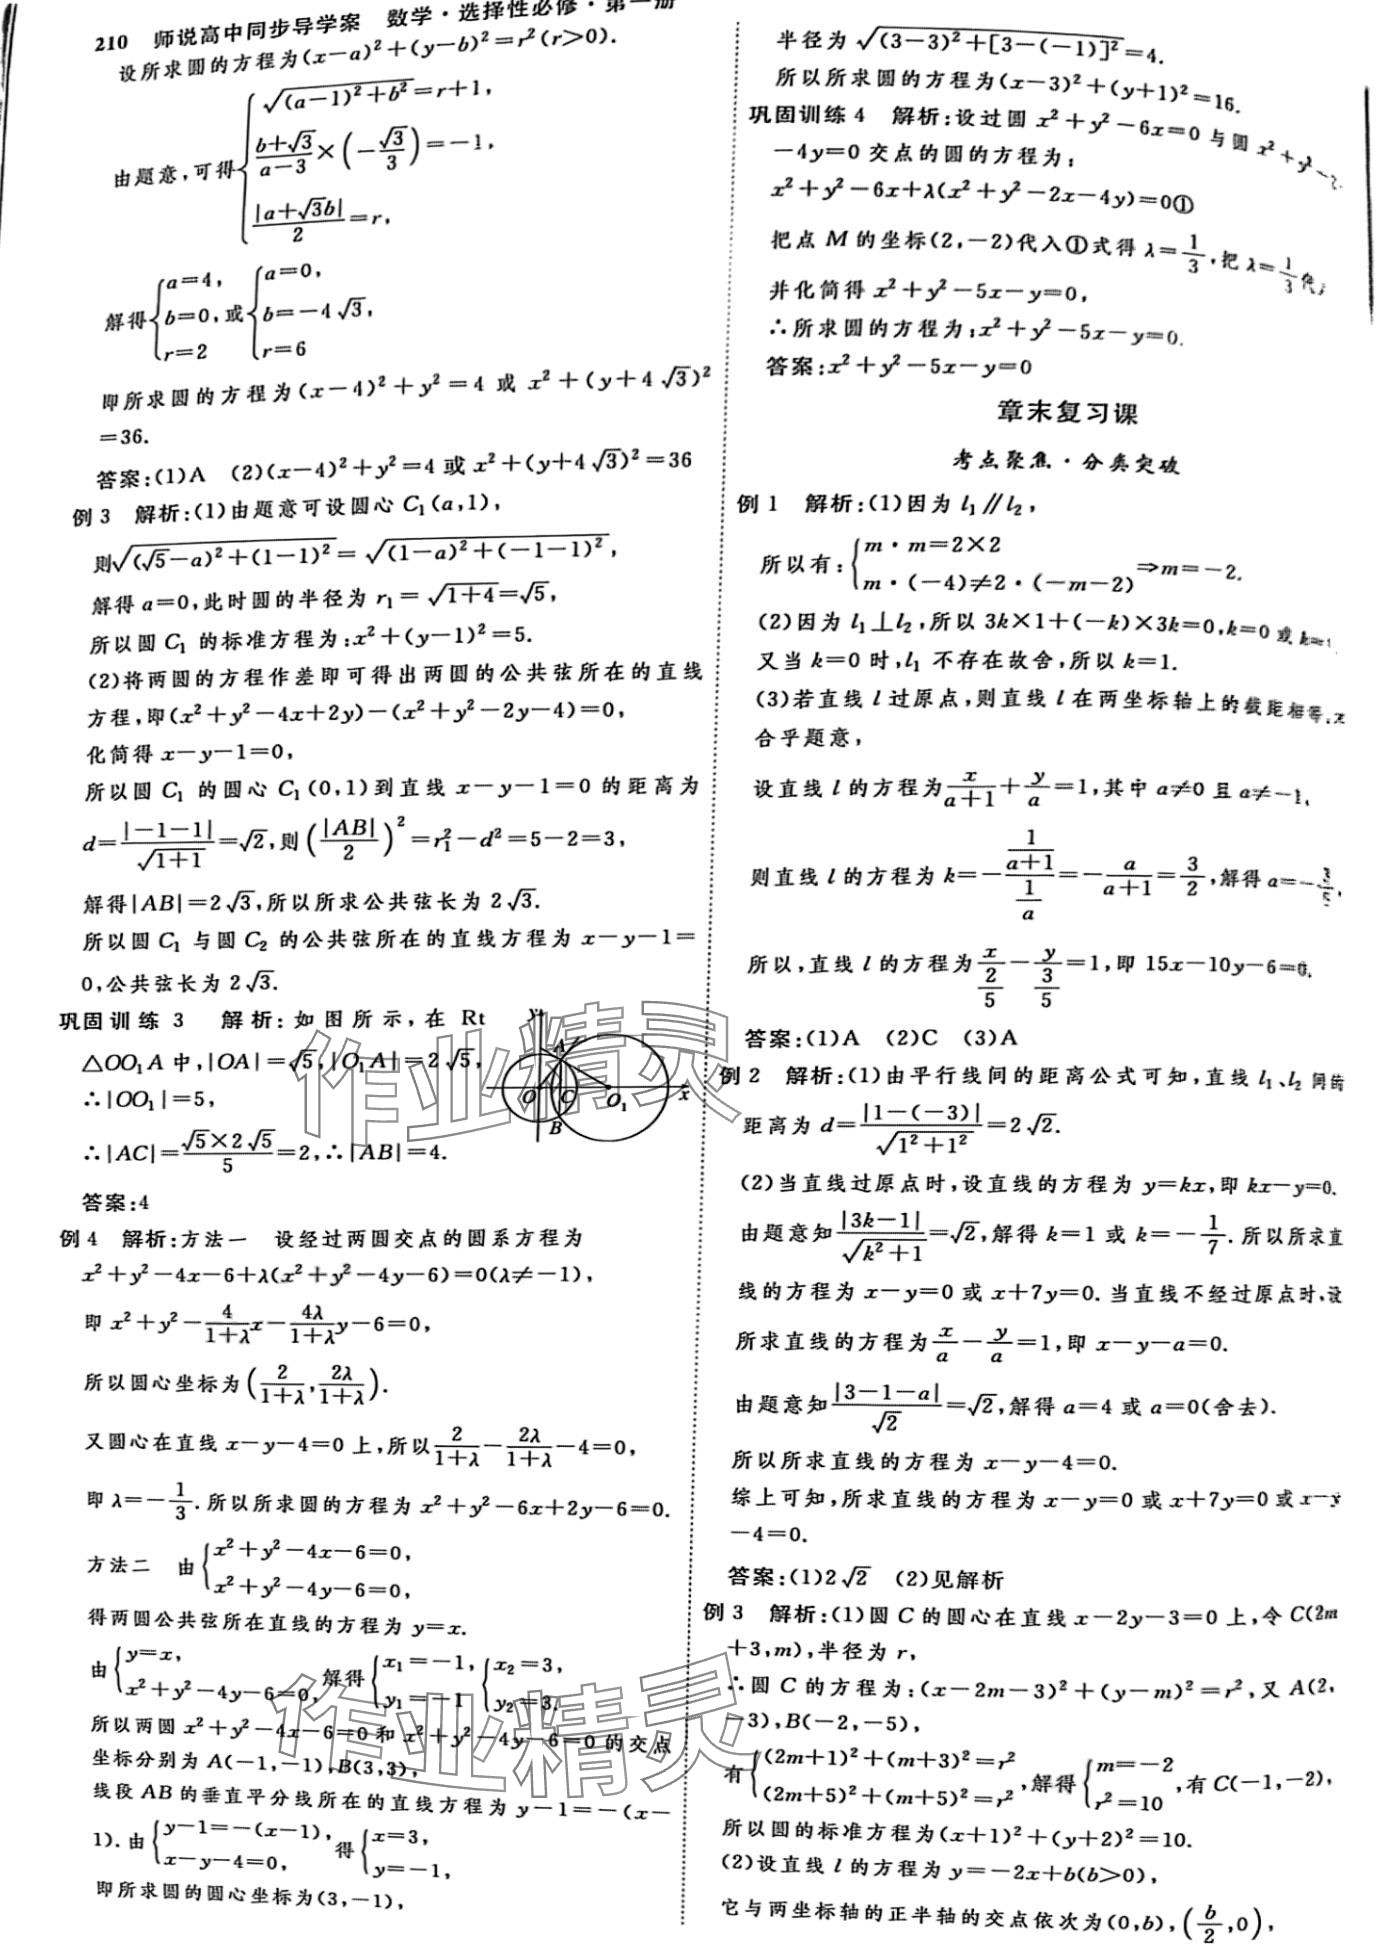 210 师说高中同步导学案 数学·选择性必修·第一册
设所求圆的方程为(x-a)²+(y-b)²=r²(r>0).
由题意,可得{√((a-1)²+b²)=r+1,
(b+√3)/(a-3)×(-√3/3)=-1,
|a+√3b|/2=r,
解得{a=4, b=0, r=2 或{a=0, b=-4√3, r=6
即所求圆的方程为(x-4)²+y²=4 或 x²+(y+4√3)²
=36.
答案:(1)A (2)(x-4)²+y²=4 或 x²+(y+4√3)²=36
例3 解析:(1)由题意可设圆心 C₁(a,1),
则√((√5-a)²+(1-1)²)=√((1-a)²+(-1-1)²),
解得 a=0,此时圆的半径为 r₁=√(1+4)=√5,
所以圆 C₁ 的标准方程为:x²+(y-1)²=5.
(2)将两圆的方程作差即可得出两圆的公共弦所在的直线
方程,即(x²+y²-4x+2y)-(x²+y²-2y-4)=0,
化简得 x-y-1=0,
所以圆 C₁ 的圆心 C₁(0,1)到直线 x-y-1=0 的距离为
d=|-1-1|/√(1+1)=√2,则(|AB|/2)²=r₁²-d²=5-2=3,
解得|AB|=2√3,所以所求公共弦长为 2√3.
所以圆 C₁ 与圆 C₂ 的公共弦所在的直线方程为 x-y-1=
0,公共弦长为 2√3.
巩固训练3 解析:如图所示,在 Rt
△OO₁A 中,|OA|=√5,|O₁A|=2√5,
∴|OO₁|=5,
∴|AC|=(√5×2√5)/5=2,∴|AB|=4.
y A O C O₁ x B
答案:4
例4 解析:方法一 设经过两圆交点的圆系方程为
x²+y²-4x-6+λ(x²+y²-4y-6)=0(λ≠-1),
即 x²+y²-4/(1+λ)x-4λ/(1+λ)y-6=0,
所以圆心坐标为(2/(1+λ),2λ/(1+λ)).
又圆心在直线 x-y-4=0 上,所以2/(1+λ)-2λ/(1+λ)-4=0,
即 λ=-1/3.所以所求圆的方程为 x²+y²-6x+2y-6=0.
方法二 由{x²+y²-4x-6=0,
x²+y²-4y-6=0,
得两圆公共弦所在直线的方程为 y=x.
由{y=x, x²+y²-4y-6=0, 解得{x₁=-1, y₁=-1 {x₂=3, y₂=3.
所以两圆 x²+y²-4x-6=0 和 x²+y²-4y-6=0 的交点
坐标分别为 A(-1,-1),B(3,3),
线段 AB 的垂直平分线所在的直线方程为 y-1=-(x-
1).由{y-1=-(x-1), x-y-4=0, 得{x=3, y=-1,
即所求圆的圆心坐标为(3,-1),
半径为√((3-3)²+[3-(-1)]²)=4.
所以所求圆的方程为(x-3)²+(y+1)²=16.
巩固训练4 解析:设过圆 x²+y²-6x=0 与圆 x²+y²-2
-4y=0 交点的圆的方程为:
x²+y²-6x+λ(x²+y²-2x-4y)=0①
把点 M 的坐标(2,-2)代入①式得 λ=1/3,把 λ=1/3 代
并化简得 x²+y²-5x-y=0,
∴所求圆的方程为:x²+y²-5x-y=0.
答案:x²+y²-5x-y=0
章末复习课
考点聚焦·分类突破
例1 解析:(1)因为 l₁∥l₂,
所以有:{m·m=2×2
m·(-4)≠2·(-m-2) ⇒m=-2.
(2)因为 l₁⊥l₂,所以 3k×1+(-k)×3k=0,k=0 或 k=1
又当 k=0 时,l₁ 不存在故舍,所以 k=1.
(3)若直线 l 过原点,则直线 l 在两坐标轴上的截距相等,不
合乎题意,
设直线 l 的方程为x/(a+1)+y/a=1,其中 a≠0 且 a≠-1,
则直线 l 的方程为 k=-(1/(a+1))/(1/a)=-a/(a+1)=3/2,解得 a=-3/5,
所以,直线 l 的方程为x/(2/5)-y/(3/5)=1,即 15x-10y-6=0.
答案:(1)A (2)C (3)A
例2 解析:(1)由平行线间的距离公式可知,直线 l₁、l₂ 间的
距离为 d=|1-(-3)|/√(1²+1²)=2√2.
(2)当直线过原点时,设直线的方程为 y=kx,即 kx-y=0.
由题意知|3k-1|/√(k²+1)=√2,解得 k=1 或 k=-1/7.所以所求直
线的方程为 x-y=0 或 x+7y=0.当直线不经过原点时,设
所求直线的方程为x/a-y/a=1,即 x-y-a=0.
由题意知|3-1-a|/√2=√2,解得 a=4 或 a=0(舍去).
所以所求直线的方程为 x-y-4=0.
综上可知,所求直线的方程为 x-y=0 或 x+7y=0 或 x-y
-4=0.
答案:(1)2√2 (2)见解析
例3 解析:(1)圆 C 的圆心在直线 x-2y-3=0 上,令 C(2m
+3,m),半径为 r,
∴圆 C 的方程为:(x-2m-3)²+(y-m)²=r²,又 A(2,
-3),B(-2,-5),
有{(2m+1)²+(m+3)²=r²
(2m+5)²+(m+5)²=r², 解得{m=-2 r²=10, 有 C(-1,-2),
所以圆的标准方程为(x+1)²+(y+2)²=10.
(2)设直线 l 的方程为 y=-2x+b(b>0),
它与两坐标轴的正半轴的交点依次为(0,b),(b/2,0),
作业精灵
作业精灵